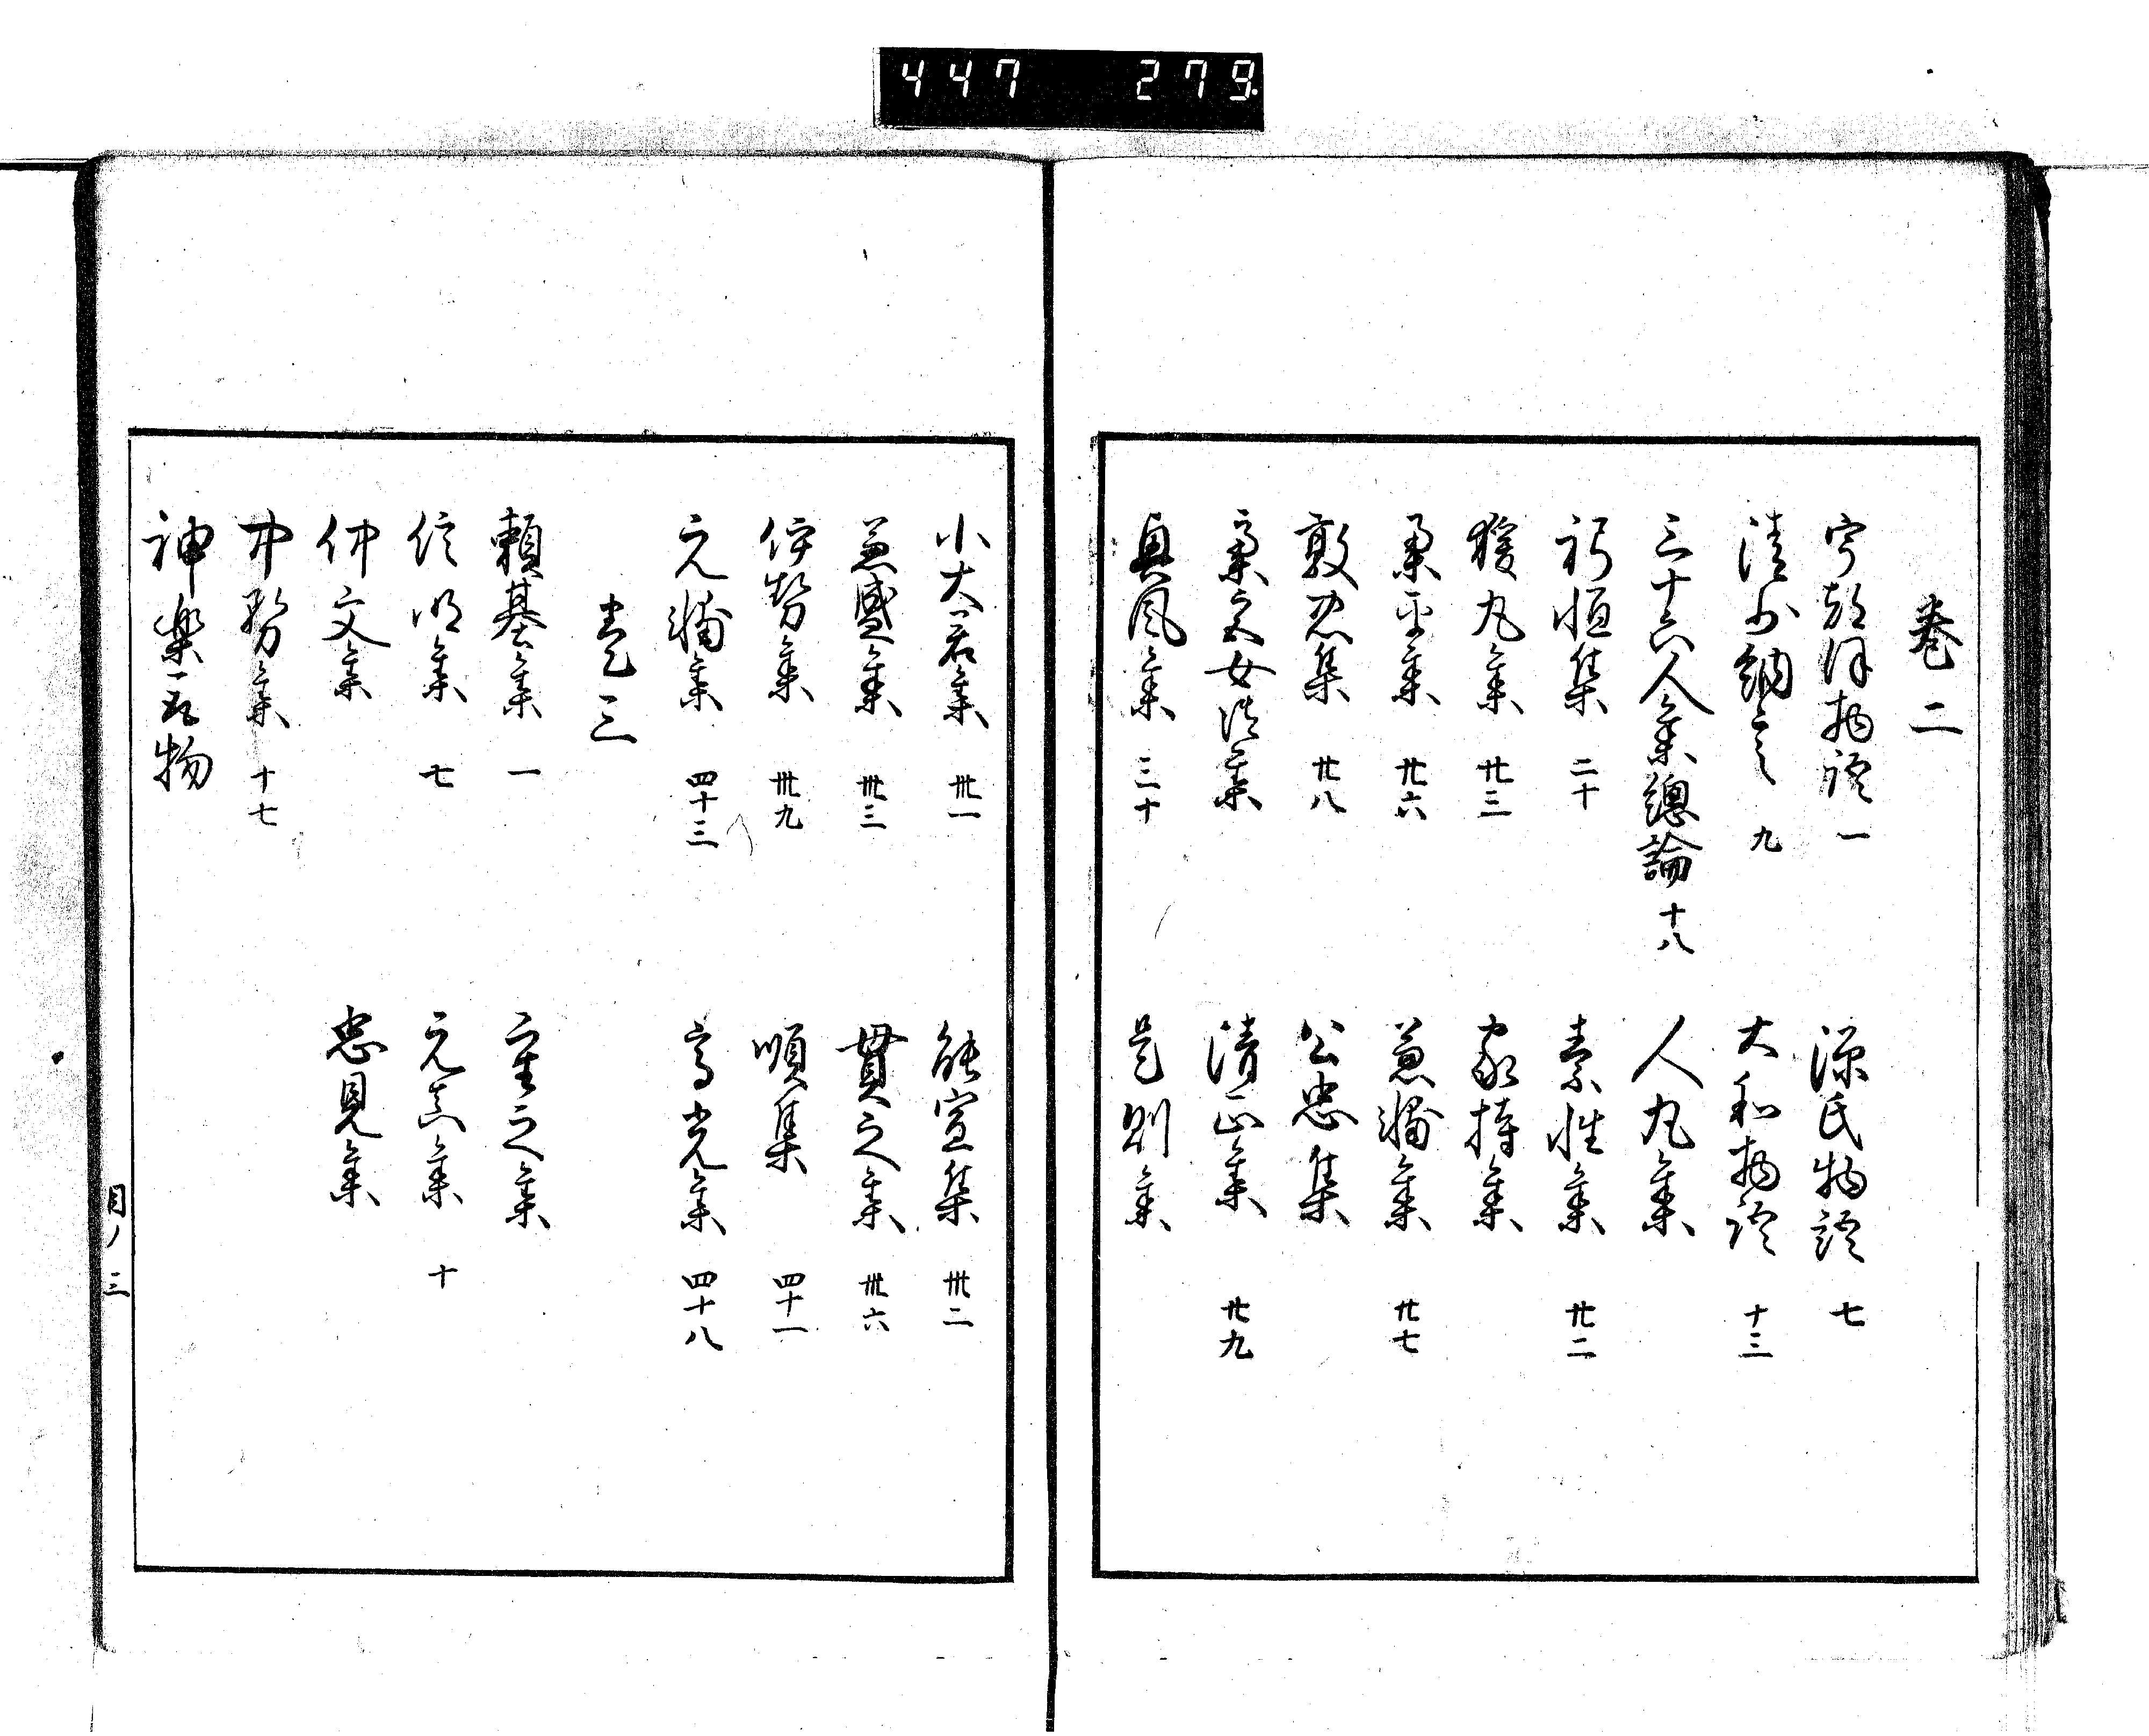 447 279
巻二
宇都保物語 一 源氏物語 七
清少納言 九 大和物語 十三
三十六人集總論 十八 人丸集
躬恒集 二十 素性集 廿二
猿丸集 廿三 家持集
業平集 廿六 兼輔集 廿七
敦忠集 廿八 公忠集
斎宮女御集 清正集 廿九
興風集 三十 是則集
小大君集 卅一 能宣集 卅二
兼盛集 卅三 貫之集 卅六
伊勢集 卅九 順集 四十一
元輔集 四十三 高光集 四十八
巻三
頼基集 一 重之集
信明集 七 元真集 十
仲文集 忠見集
中務集 十七
神楽取物
目ノ三